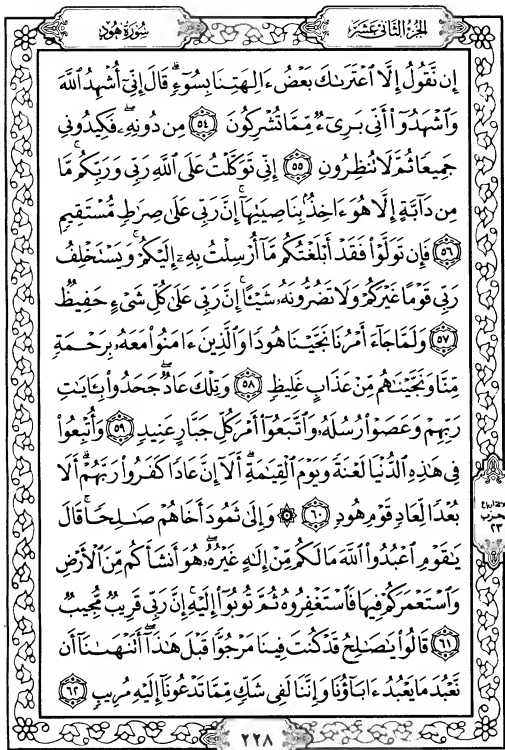 سُورَةُ هُودٍ
الجُزْءُ الثَّانِى عَشَرَ
إِن نَّقُولُ إِلَّا ٱعْتَرَىٰكَ بَعْضُ ءَالِهَتِنَا بِسُوٓءٍ ۗ قَالَ إِنِّىٓ أُشْهِدُ ٱللَّهَ
وَٱشْهَدُوٓا۟ أَنِّى بَرِىٓءٌ مِّمَّا تُشْرِكُونَ ٥٤ مِن دُونِهِۦ ۖ فَكِيدُونِى
جَمِيعًا ثُمَّ لَا تُنظِرُونِ ٥٥ إِنِّى تَوَكَّلْتُ عَلَى ٱللَّهِ رَبِّى وَرَبِّكُم ۚ مَّا
مِن دَآبَّةٍ إِلَّا هُوَ ءَاخِذٌۢ بِنَاصِيَتِهَآ ۚ إِنَّ رَبِّى عَلَىٰ صِرَٰطٍ مُّسْتَقِيمٍ
٥٦ فَإِن تَوَلَّوْا۟ فَقَدْ أَبْلَغْتُكُم مَّآ أُرْسِلْتُ بِهِۦٓ إِلَيْكُمْ ۚ وَيَسْتَخْلِفُ
رَبِّى قَوْمًا غَيْرَكُمْ وَلَا تَضُرُّونَهُۥ شَيْـًٔا ۚ إِنَّ رَبِّى عَلَىٰ كُلِّ شَىْءٍ حَفِيظٌ
٥٧ وَلَمَّا جَآءَ أَمْرُنَا نَجَّيْنَا هُودًا وَٱلَّذِينَ ءَامَنُوا۟ مَعَهُۥ بِرَحْمَةٍ
مِّنَّا وَنَجَّيْنَٰهُم مِّنْ عَذَابٍ غَلِيظٍ ٥٨ وَتِلْكَ عَادٌ ۖ جَحَدُوا۟ بِـَٔايَٰتِ
رَبِّهِمْ وَعَصَوْا۟ رُسُلَهُۥ وَٱتَّبَعُوٓا۟ أَمْرَ كُلِّ جَبَّارٍ عَنِيدٍ ٥٩ وَأُتْبِعُوا۟
فِى هَٰذِهِ ٱلدُّنْيَا لَعْنَةً وَيَوْمَ ٱلْقِيَٰمَةِ ۗ أَلَآ إِنَّ عَادًا كَفَرُوا۟ رَبَّهُمْ ۗ أَلَا
بُعْدًا لِّعَادٍ قَوْمِ هُودٍ ٦٠ ۞ وَإِلَىٰ ثَمُودَ أَخَاهُمْ صَٰلِحًا ۚ قَالَ
يَٰقَوْمِ ٱعْبُدُوا۟ ٱللَّهَ مَا لَكُم مِّنْ إِلَٰهٍ غَيْرُهُۥ ۖ هُوَ أَنشَأَكُم مِّنَ ٱلْأَرْضِ
وَٱسْتَعْمَرَكُمْ فِيهَا فَٱسْتَغْفِرُوهُ ثُمَّ تُوبُوٓا۟ إِلَيْهِ ۚ إِنَّ رَبِّى قَرِيبٌ مُّجِيبٌ
٦١ قَالُوا۟ يَٰصَٰلِحُ قَدْ كُنتَ فِينَا مَرْجُوًّا قَبْلَ هَٰذَآ ۖ أَتَنْهَىٰنَآ أَن
نَّعْبُدَ مَا يَعْبُدُ ءَابَآؤُنَا وَإِنَّنَا لَفِى شَكٍّ مِّمَّا تَدْعُونَآ إِلَيْهِ مُرِيبٍ ٦٢
الحزب
٢٣
٢٢٨